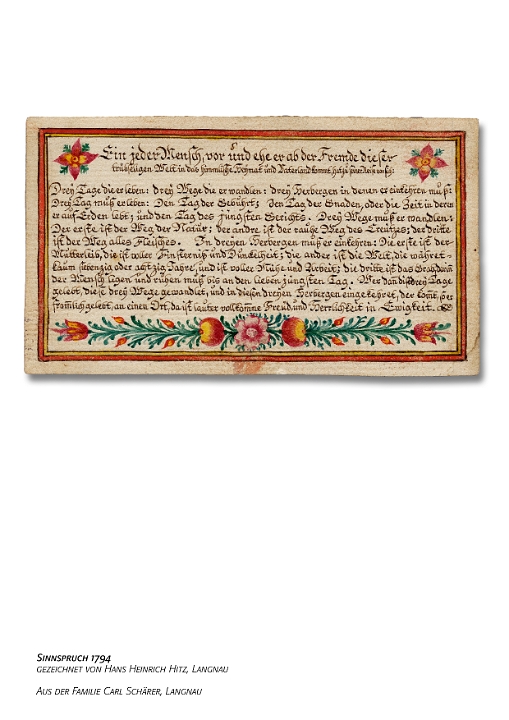 Ein jeder Mensch, vor und ehe er ab der Fremde dieser
trübseligen Welt in das himmlische Heymat und Vaterland kommt,
Drey Tage die er leben: drey Wege die er wandlen: drey Herbergen in denen er einkehren muß:
Drey Tag muß er leben: Den Tag der Gebuhrt; den Tag der Gnaden, oder die Zeit in deren
er auf Erden lebt; und den Tag des Jüngsten Gerichts. Drey Wege muß er wandlen:
Der erste ist der Weg der Natur; der andre ist der rauche Weg des Creutzes; der dritte
ist der Weg alles Fleisches. In dreyen Herbergen muß er einkehren: Die erste ist der
Mutterleib, die ist voller Finsterniß und Dunckelheit; die ander ist die Welt, die währet
kaum sibenzig oder achtzig Jahre, und ist voller Mühe und Arbeit; die dritte ist das Grab, darin
der Mensch ligen und ruhen muß bis an den lieben jüngsten Tag. Wer dan dise drey Tage
gelebt, diese drey Wege gewandlet, und in diesen dreyen Herbergen eingekehret, der komt,
fromlich gelebt, an einen Ort, da ist lauter vollkomne Freud und Herrlichkeit in Ewigkeit.
Sinnspruch 1794
gezeichnet von Hans Heinrich Hitz, Langnau
Aus der Familie Carl Schärer, Langnau